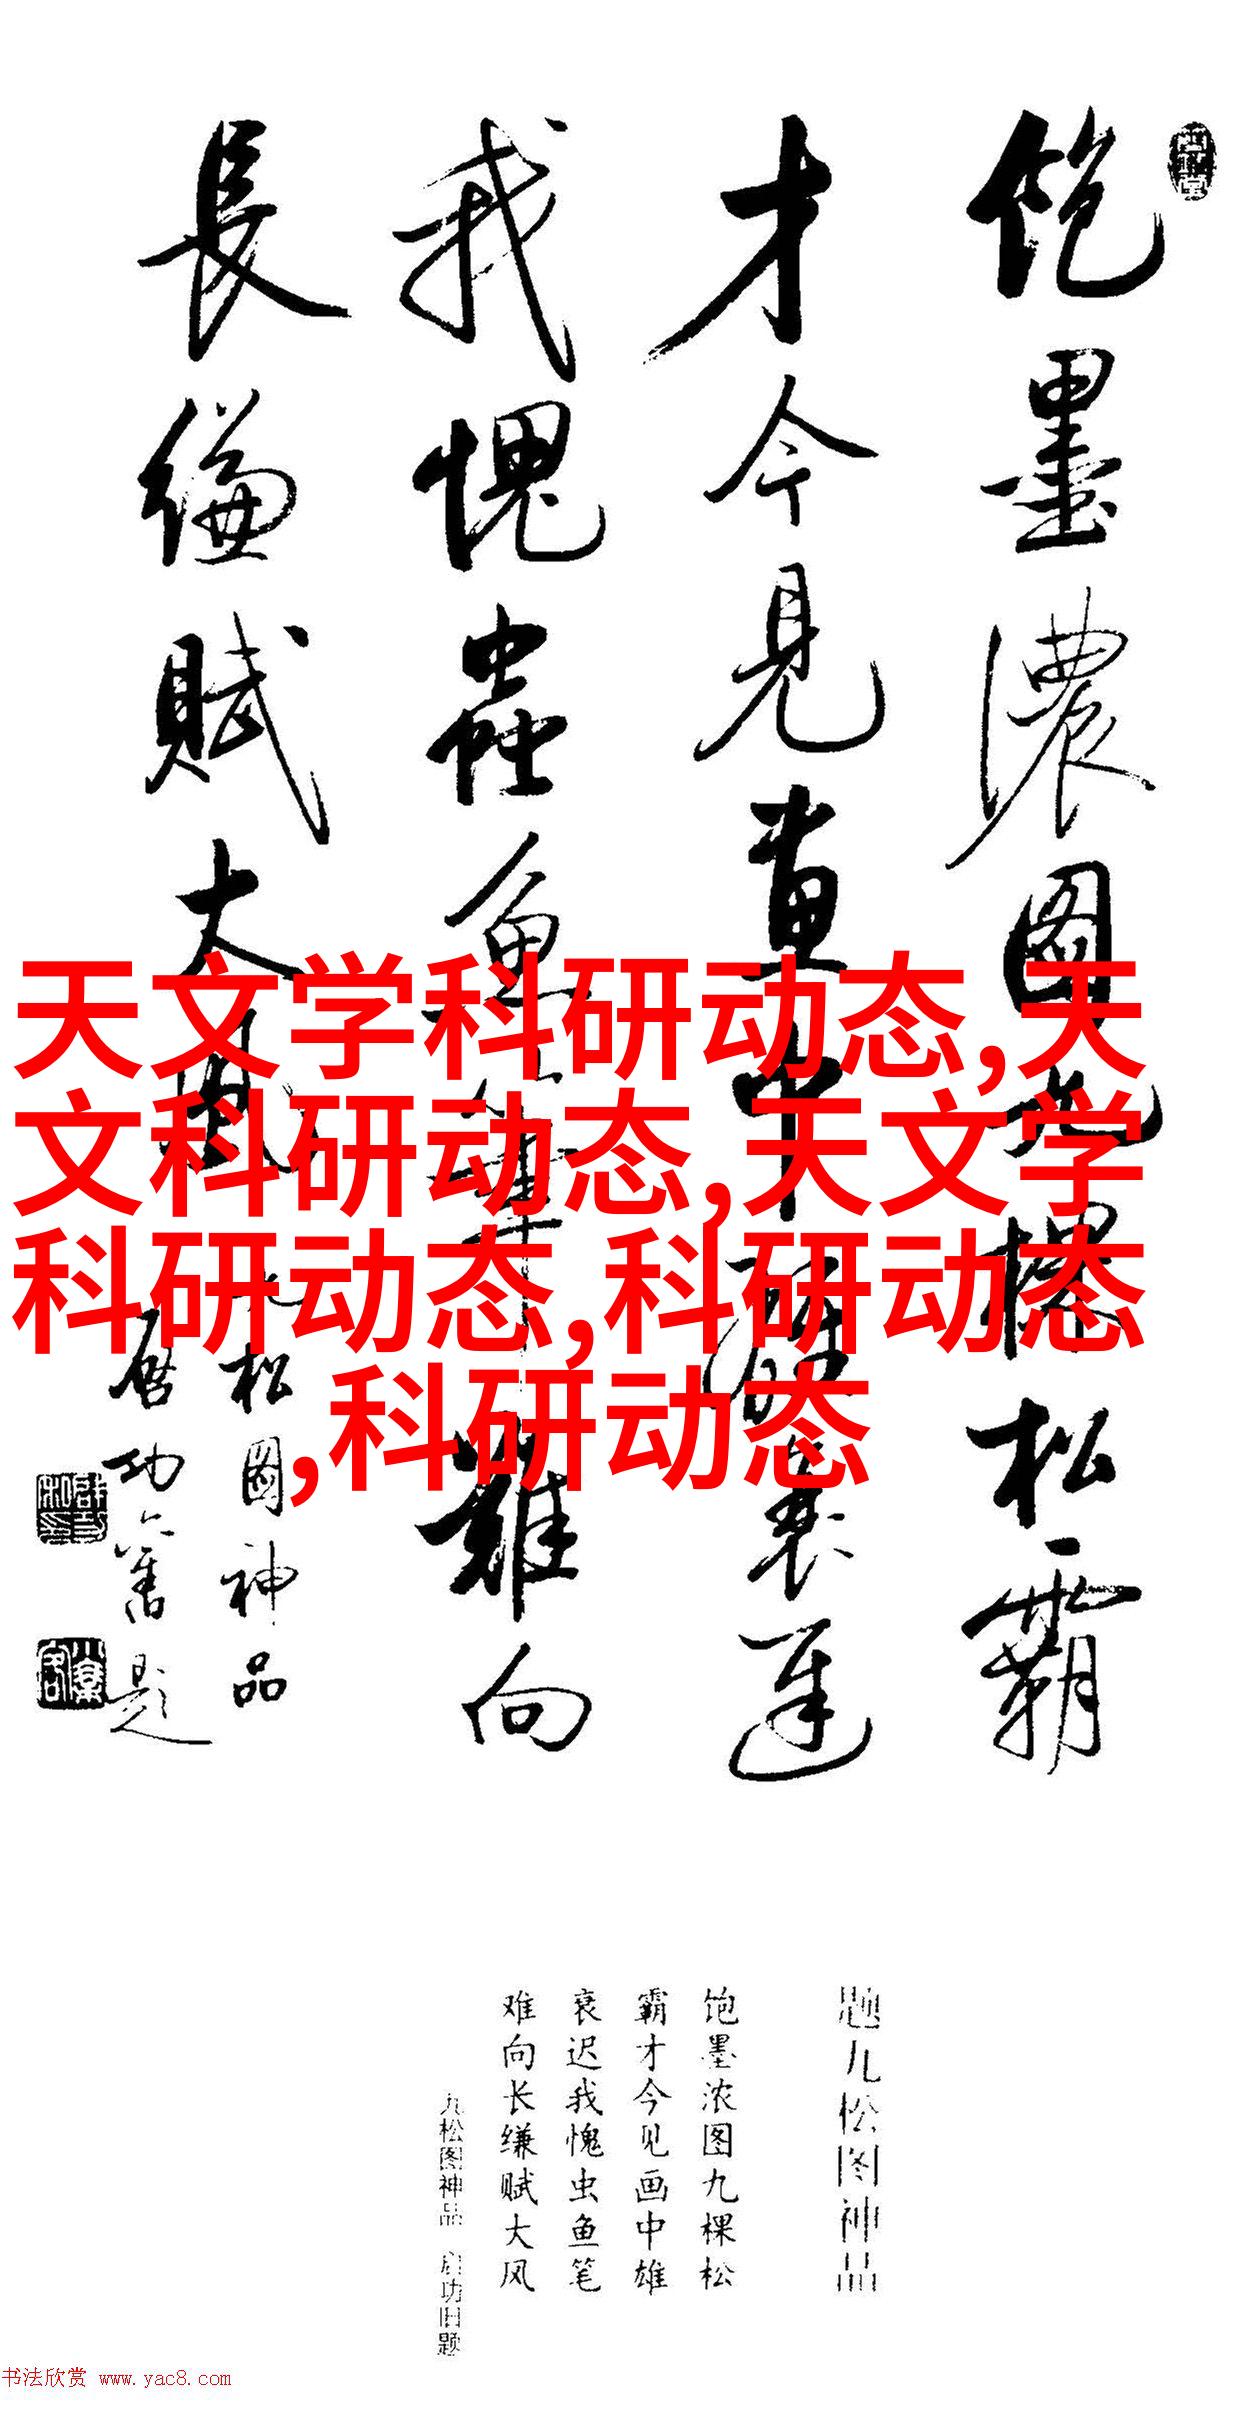 饱墨濃图九棵松霸
才今見画中雄衰迟
我愧蟲鱼笔難向
長縑賦大風
九松图神品
启功旧题
天文学科研动态,天
文科研动态,天文学
科研动态,科研动态
,科研动态
题九松图神品
饱墨浓图九棵松
霸才今见画中雄
衰迟我愧虫鱼笔
难向长缣赋大风
九松图神品 启功旧题
书法欣赏 www.yac8.com